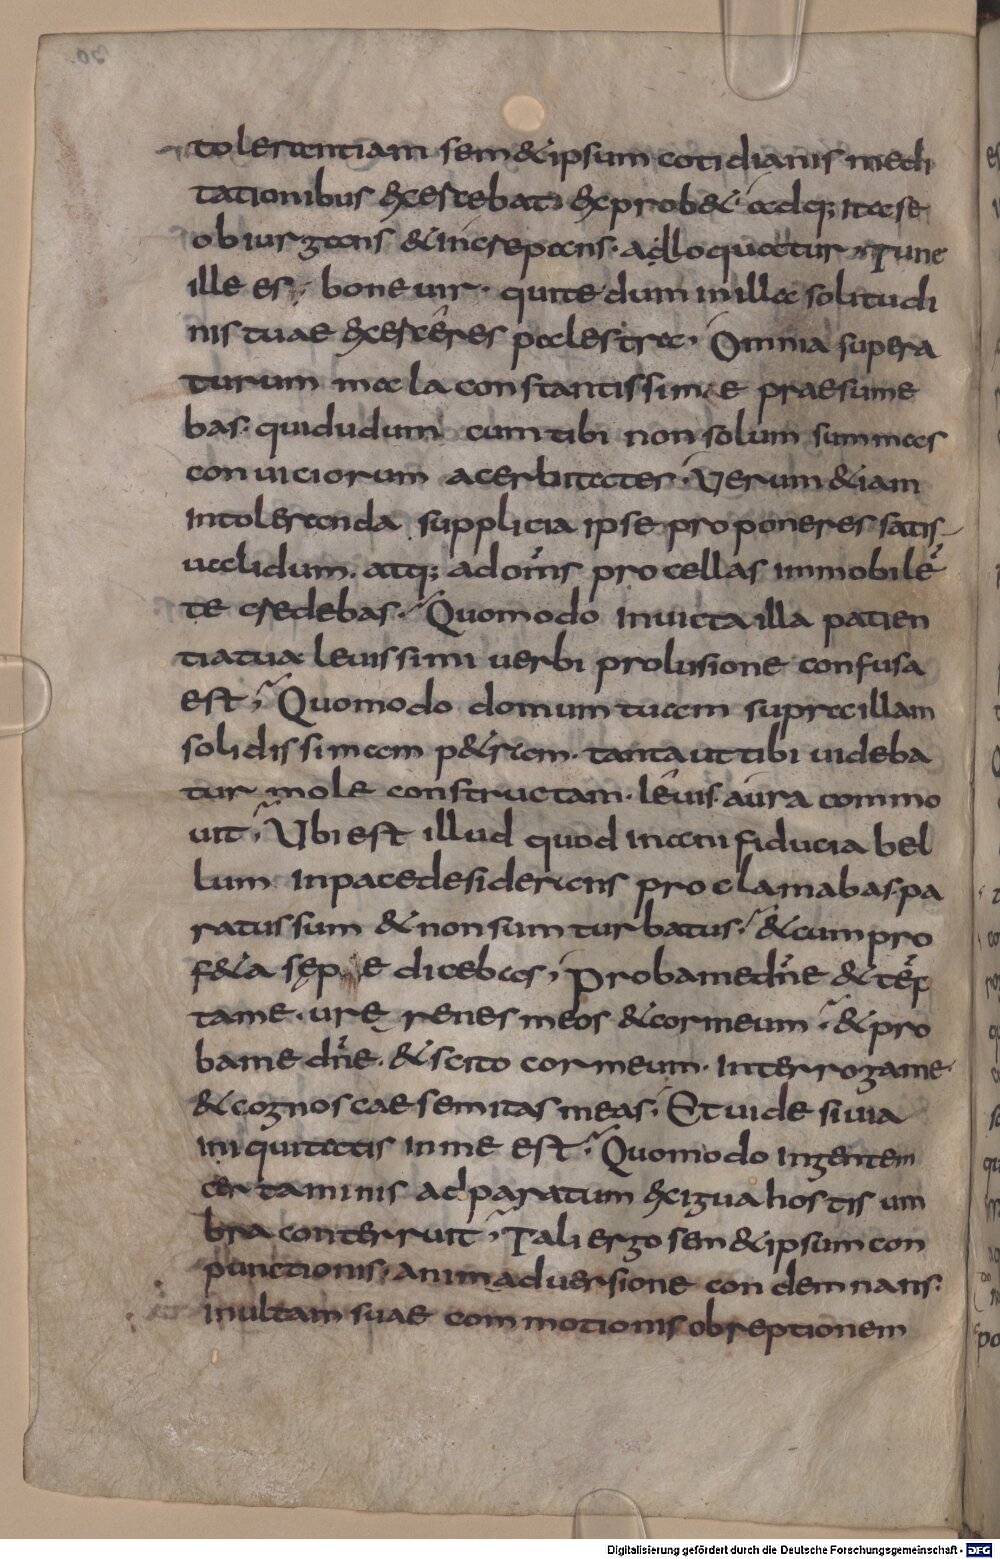 tolerantiam sem&ipsum cotidianis medi
tationibus exercebat exprob& adq; ita se
obiurgans & increpans. adloquatur. Tune
ille es, bone uir. qui te dum in illa solitudi
nis tuae exerceres palestra. Omnia supera
turum mala constantissime praesume
bas. qui dudum cum tibi non solum summas
conuiciorum acerbitates. Verum & iam
intoleranda supplicia ipse proponeres satis
ualidum. atq; ad om̄s procellas immobilē
te credebas. Quomodo inuicta illa patien
tia tua leuissimi uerbi prolusione confusa
est; Quomodo domum tuam supra illam
solidissimam p&ram. tanta ut tibi uideba
tur mole constructam. leuis aura commo
uit; Vbi est illud quod inani fiducia bel
lum in pace desiderans proclamabas. pa
ratus sum & non sum turbatus; & cum pro
f&a sepe dicebas, Proba me dn̄e & tēp
ta me. ure renes meos & cor meum; & pro
ba me dn̄e. & scito cor meum. interroga me
& cognosce semitas meas; Et uide si uia
iniquitatis in me est; Quomodo ingentem
certaminis adparatum exigua hostis um
bra conterruit; Tali ergo sem&ipsum con
punctionis, animaduersione condemnans.
inultam suae commotionis obreptionem
Digitalisierung gefördert durch die Deutsche Forschungsgemeinschaft - DFG